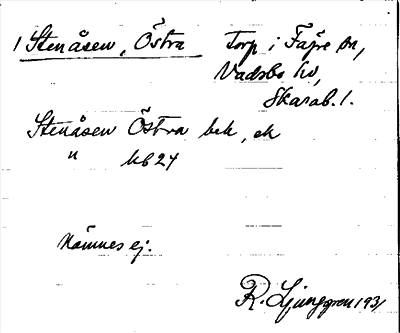 1 Stenåsen, Östra Torp i Fägre sn,
Vadsbo hd,
Skarab. l.
Stenåsen Östra bek, ek
" hb 24
Nämnes ej.
R. Ljunggren 1931